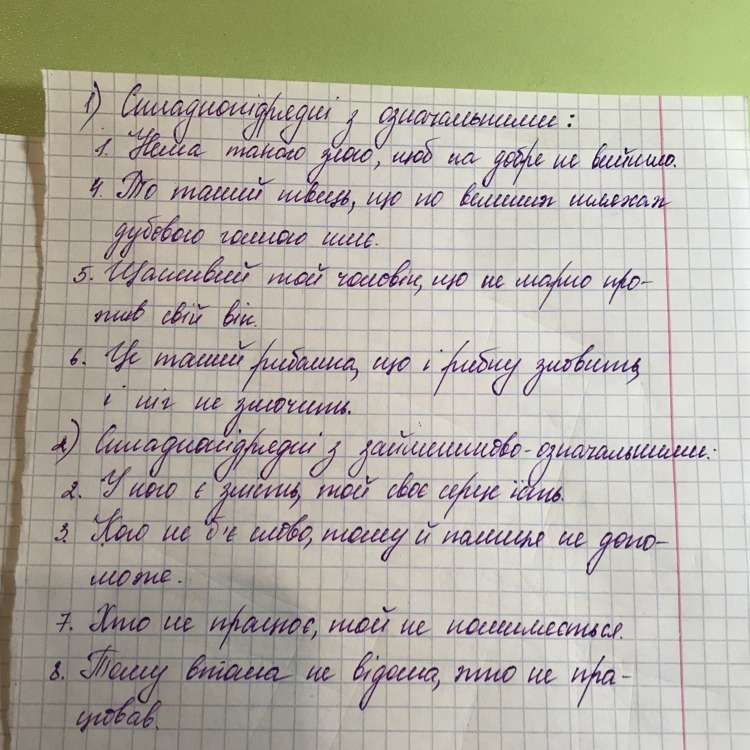 1) Складнопідрядні з означальними:
1. Нема такого злого, щоб на добре не вийшло.
4. То такий швець, що по великих шляхах
дубового голкою шиє.
5. Щасливий той чоловік, що не марно про-
жив свій вік.
6. Це такий рибалка, що і рибку зловить,
і ніг не змочить.
2) Складнопідрядні з займенниково-означальними:
2. У кого є злість, той своє серце їсть.
3. Кого не б'є слово, тому й палиця не допо-
може.
7. Хто не працює, той не помиляється.
8. Тому втома не відома, хто не пра-
цював.